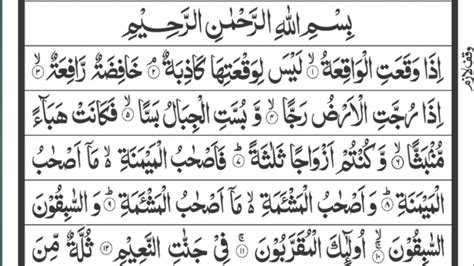 بِسْمِ اللّٰهِ الرَّحْمٰنِ الرَّحِيْمِ
اِذَا وَقَعَتِ الْوَاقِعَةُ ۙ﴿۱﴾ لَيْسَ لِوَقْعَتِهَا كَاذِبَةٌ ۘ﴿۲﴾ خَافِضَةٌ رَّافِعَةٌ ۙ﴿۳﴾
وقف لازم
اِذَا رُجَّتِ الْاَرْضُ رَجًّا ۙ﴿۴﴾ وَّ بُسَّتِ الْجِبَالُ بَسًّا ۙ﴿۵﴾ فَكَانَتْ هَبَآءً
مُّنْۢبَثًّا ۙ﴿۶﴾ وَّ كُنْتُمْ اَزْوَاجًا ثَلٰثَةً ؕ﴿۷﴾ فَاَصْحٰبُ الْمَيْمَنَةِ ۙ۬ مَاۤ اَصْحٰبُ
الْمَيْمَنَةِ ؕ﴿۸﴾ وَ اَصْحٰبُ الْمَشْـَٔمَةِ ۙ۬ مَاۤ اَصْحٰبُ الْمَشْـَٔمَةِ ؕ﴿۹﴾ وَ السّٰبِقُوْنَ
السّٰبِقُوْنَ ۚۙ﴿۱۰﴾ اُولٰٓئِكَ الْمُقَرَّبُوْنَ ۚ﴿۱۱﴾ فِيْ جَنّٰتِ النَّعِيْمِ ﴿۱۲﴾ ثُلَّةٌ مِّنَ